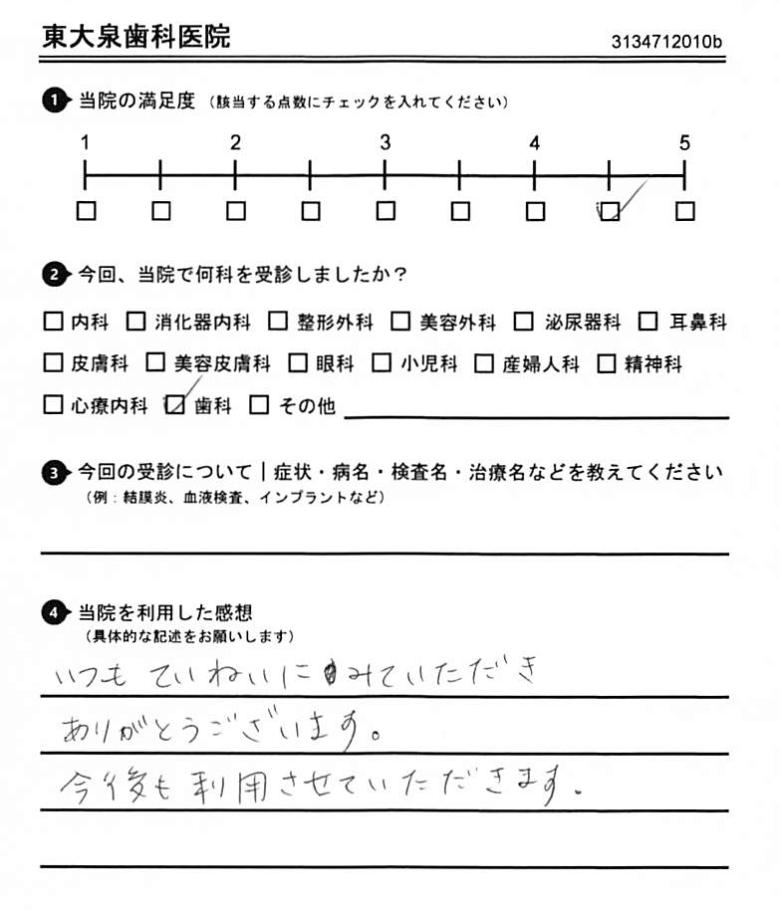 東大泉歯科医院 3134712010b
1 当院の満足度 (該当する点数にチェックを入れてください)
1 2 3 4 5
2 今回、当院で何科を受診しましたか?
内科 消化器内科 整形外科 美容外科 泌尿器科 耳鼻科
皮膚科 美容皮膚科 眼科 小児科 産婦人科 精神科
心療内科 歯科 その他
3 今回の受診について|症状・病名・検査名・治療名などを教えてください
(例:結膜炎、血液検査、インプラントなど)
4 当院を利用した感想
(具体的な記述をお願いします)
いつも ていねいに みていただき
ありがとうございます。
今後も利用させていただきます.